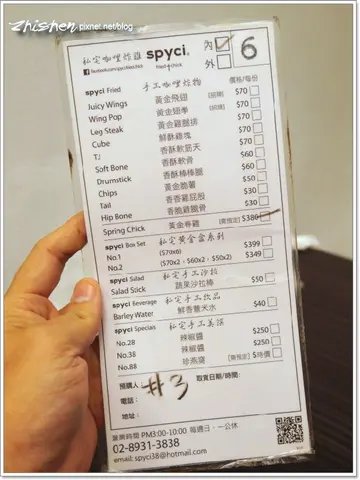 zhishen pixnet.net/blog
私宅咖哩炸雞 spyci.
facebook.com/spycifriedchick fried chick
內 ✓ 6
外
spyci Fried 手工咖哩炸物 價格/每份
Juicy Wings 黃金飛翅 $70
Wing Pop 黃金翅拳 $70
Leg Steak 黃金雞腿排 $70
Cube 鮮酥雞塊 $70
TJ 香酥軟筋天 $70
Soft Bone 香酥軟骨 $60
Drumstick 香酥棒棒腿 $60
Chips 黃金脆薯 $50
Tail 香香雞屁股 $30
Hip Bone 香脆雞腿骨 $30
Spring Chick 黃金春雞 [需預定] $380
spyci Box Set 私宅黃金盒系列
No.1 (570x6) $399
No.2 (570x2、$60x2、$50x2) $349
spyci Salad 私宅手工沙拉
Salad Stick 蔬果沙拉棒 $50
spyci Beverage 私宅手工飲品
Barley Water 鮮香薏米水 $40
spyci Specials 私宅手工美饌
No.28 辣椒醬 $250
No.38 辣椒醬 $250
No.88 珍燕窩 [需預定] $時價
預購人: #3 取貨日期/時間:
電話:
地址:
營業時間 PM3:00-10:00 每週日、一公休
02-8931-3838
email: spyci38@hotmail.com